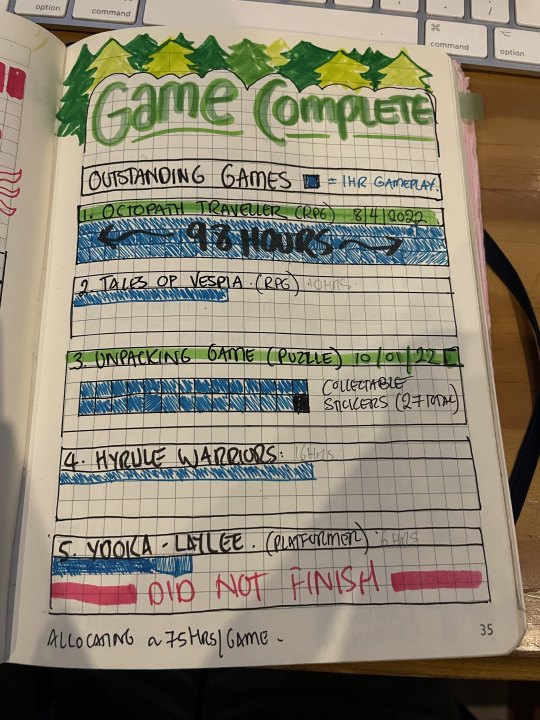 option
command
⌘
command
⌥
option
Game Complete
OUTSTANDING GAMES = 1HR GAMEPLAY.
1. OCTOPATH TRAVELLER (RPG) 8/4/2022
98 HOURS
2. TALES OF VESPIA. (RPG) 10HRS
3. UNPACKING GAME (PUZZLE) 10/01/22
COLLECTABLE
STICKERS (27 TOTAL)
4. HYRULE WARRIORS: 16HRS
5. YOOKA-LAYLEE. (PLATFORMER) 6HRS
DID NOT FINISH
ALLOCATING ~75HRS/GAME.
35